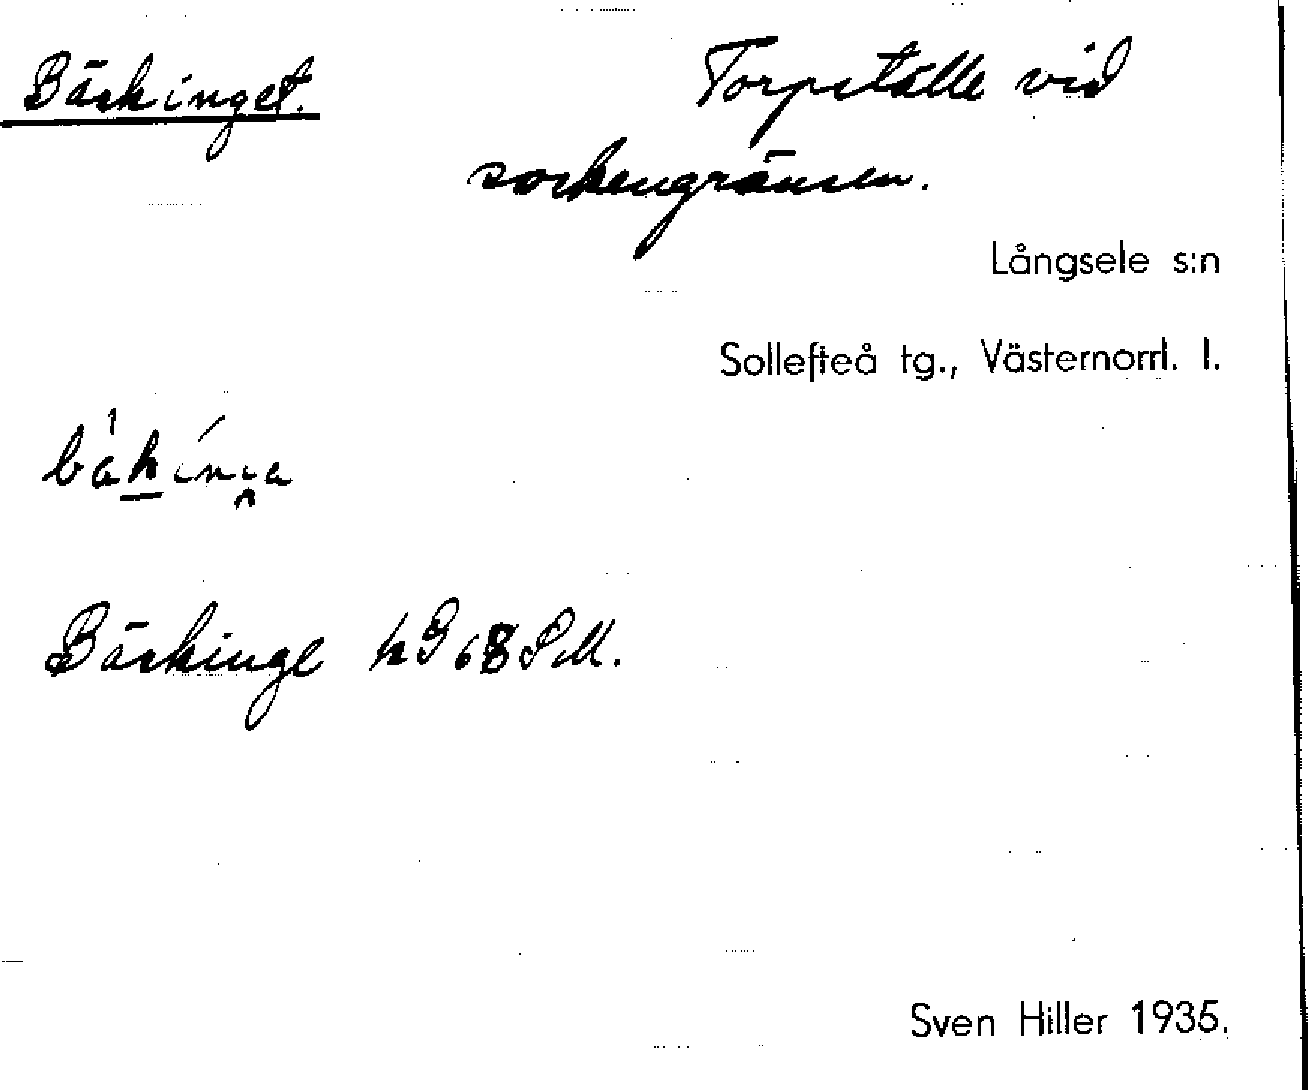 Bäckinget. Torpställe vid
sockengränsen.
Långsele s:n
Sollefteå tg., Västernorrl. l.
Bäckinge
Sven Hiller 1935.